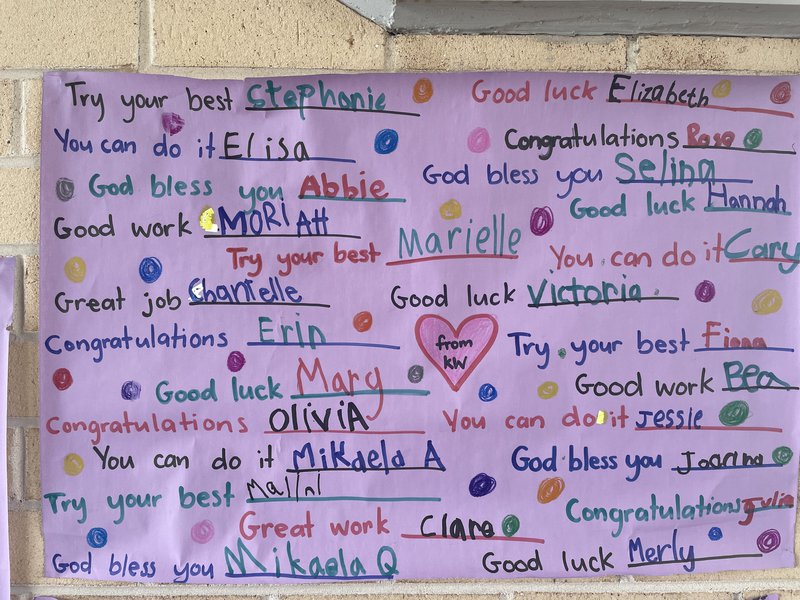 Try your best Stephanie
Good luck Elizabeth
You can do it Elisa
Congratulations Rose
God bless you Abbie
God bless you Selina
Good work MORIAH
Good luck Hannah
Try your best Marielle
You can do it Cary
Great job Chantelle
Good luck Victoria
Congratulations Erin
from
KW
Try your best Fiona
Good luck Mary
Good work Bea
Congratulations OliviA
You can do it Jessie
You can do it Mikaela A
God bless you Joanna
Try your best
Congratulations Julia
Great work Clare
God bless you Mikaela Q
Good luck Merly